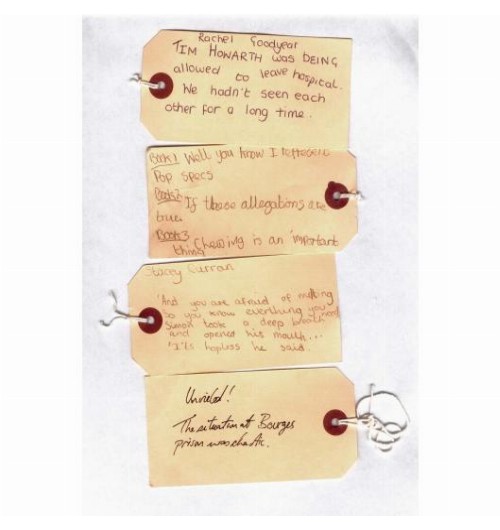 Rachel Goodyear
TIM HOWARTH was BEING
allowed to leave hospital.
We hadn't seen each
other for a long time.
Book 1 Well you know I represent
Pop specs
Book 2 If these allegations are
true.
Book 3 Chewing is an important
thing
Stacey Curran
'And you are afraid of
So you know everything you need
Simon took a deep breath
and opened his mouth...
"It's hopless he said.
The situation at Bourges
prison was chaotic.